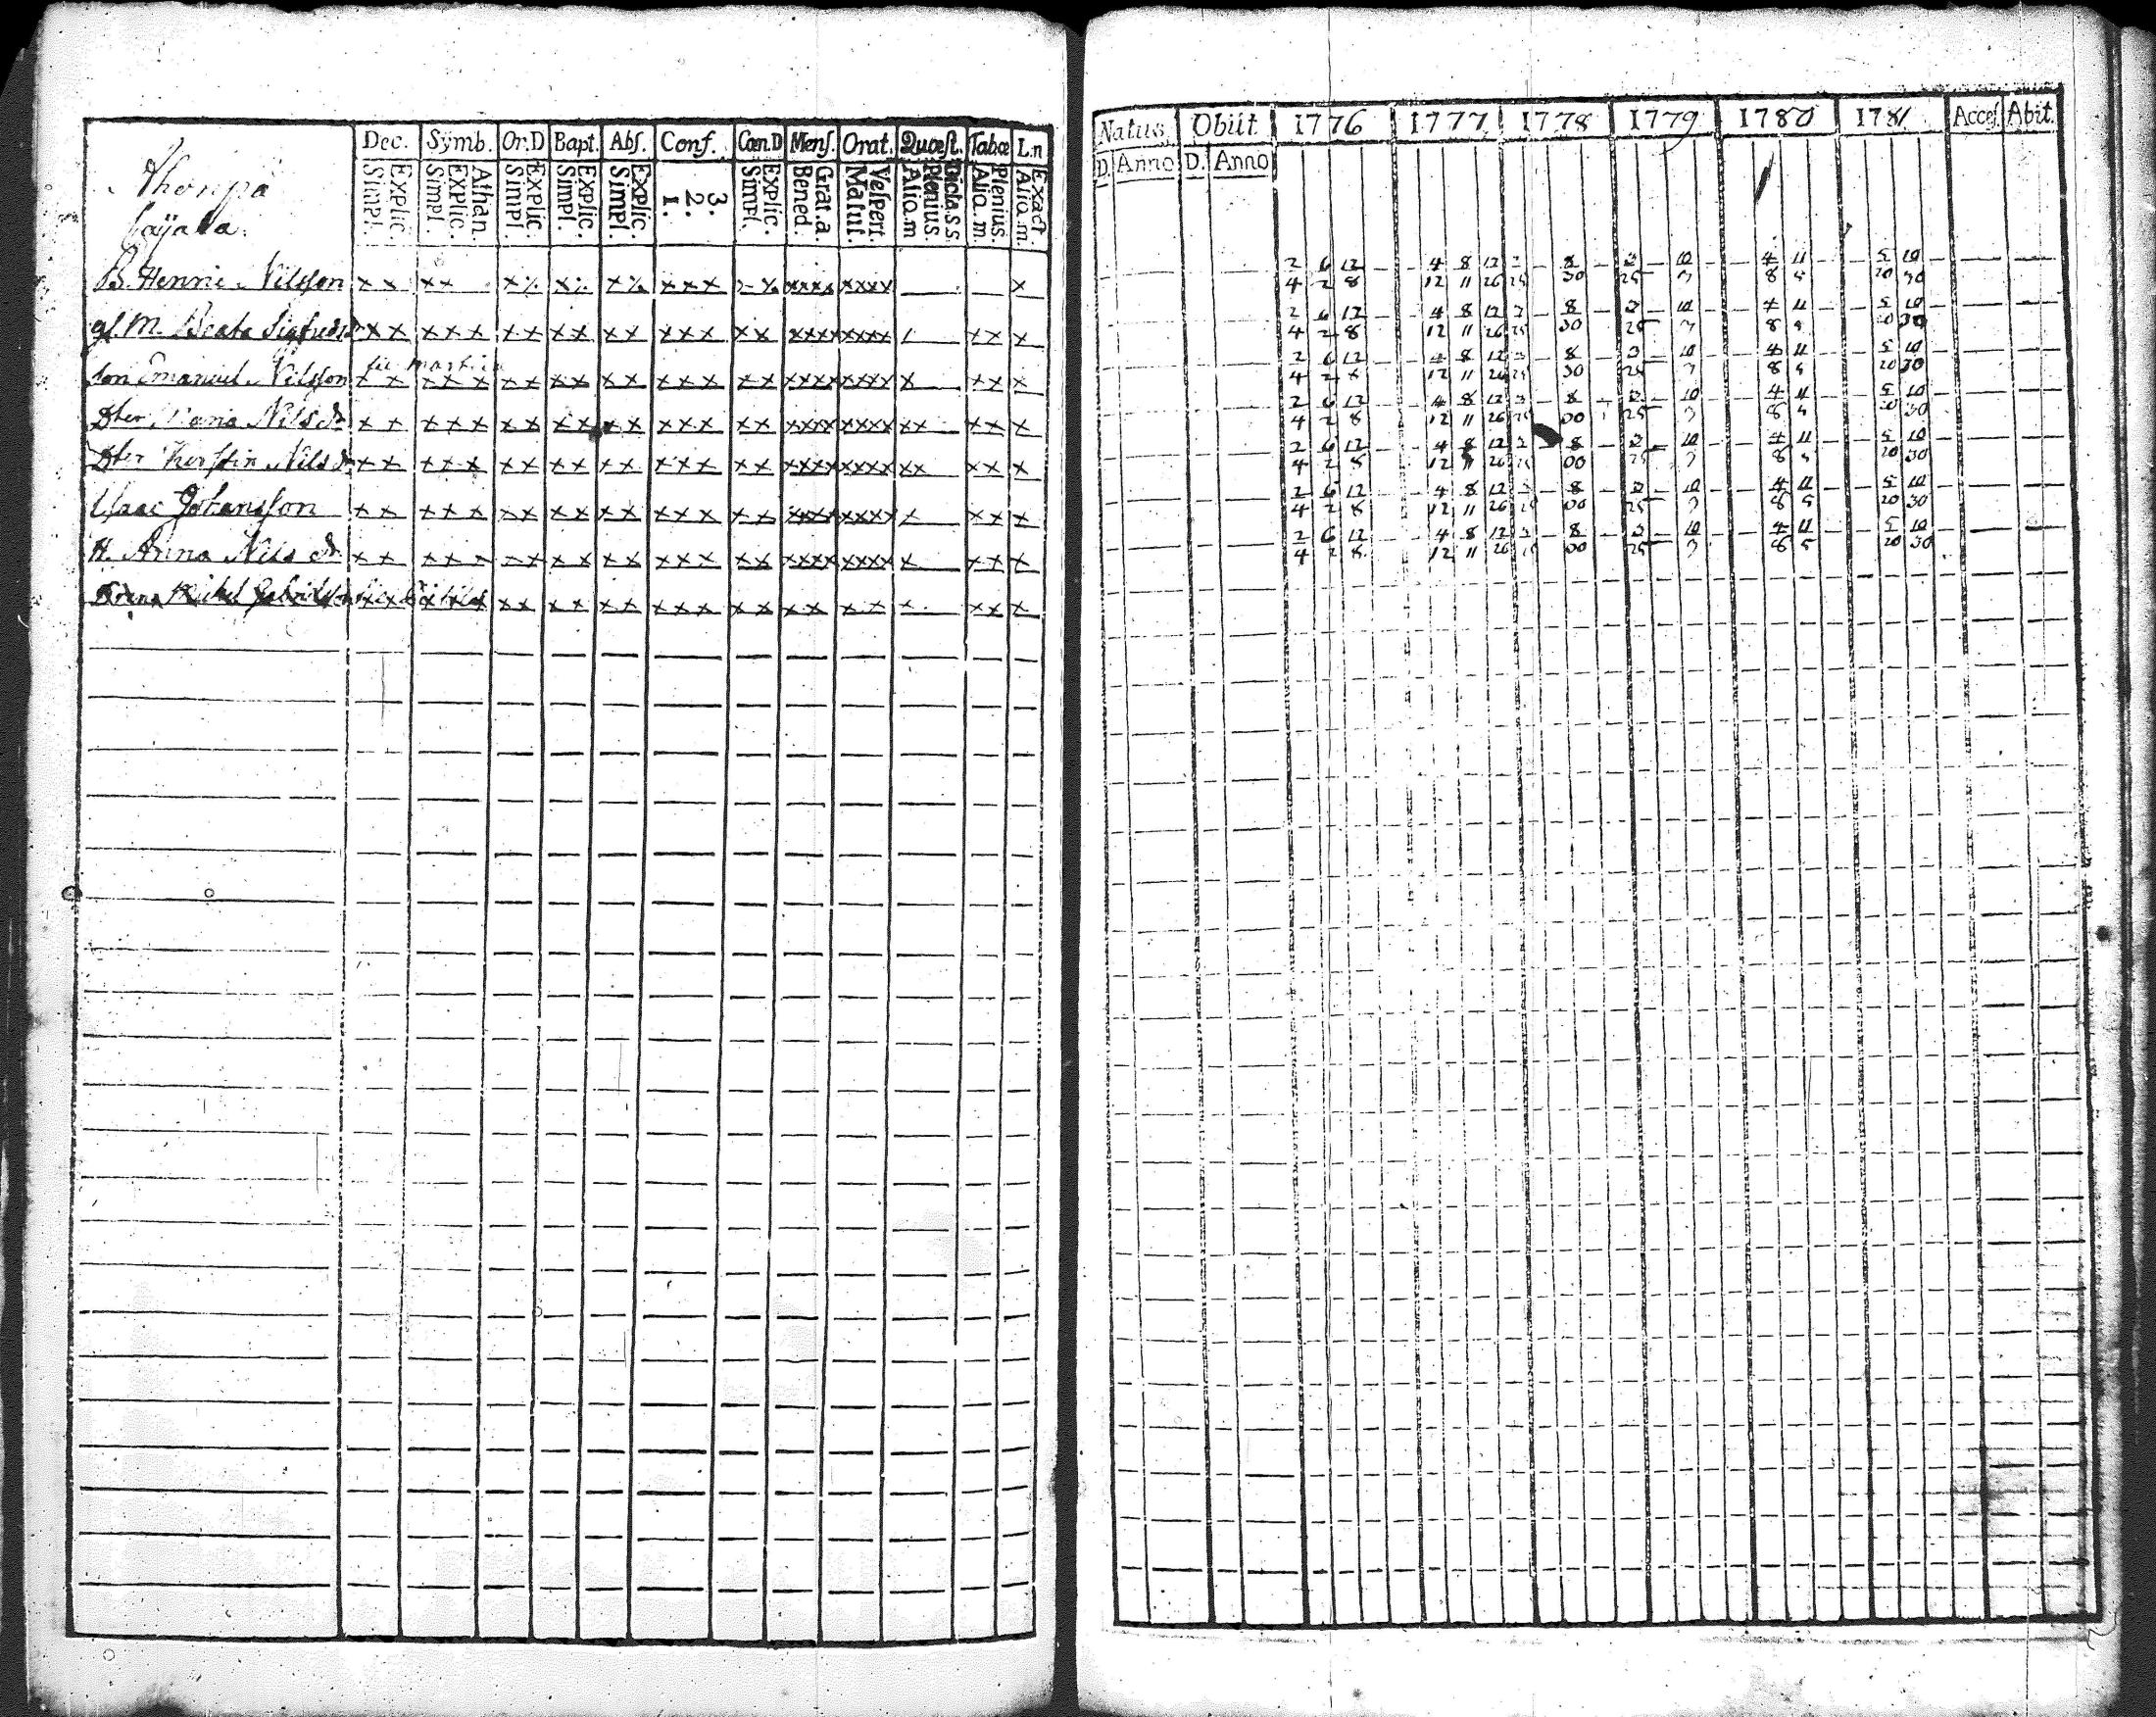 Dec. Sÿmb. Or.D Bapt. Abſ. Conf. Cœn.D Menſ. Orat. Quœſt. Tabœ L.n
Explic. Simpl. Athan. Explic. Simpl. Explic. Simpl. Explic. Simpl. Explic. Simpl. 3. 2. 1. Explic. Simpl. Grat.a. Bened. Veſpert. Matut. Dicta.S.S. Plenius. Aliq.m Plenius. Aliq.m. Exact. Aliq.m.
B. Henric Nilsson x x x x x x x x x x x x xxxx xxxx x
gl. M. Beata Sigfredsdr x x x x x x x x x x x x x x x x xxxx xxxx x x x
son Emanuel Nilsson x x x x x x x x x x x x x x x x xxxx xxxx x x x x
Dter Maria Nils dr x x x x x x x x x x x x x x x x xxxx xxxx x x x x x
Dter Kerstin Nils dr x x x x x x x x x x x x x x x x xxxx xxxx x x x x x
Isaac Johansson x x x x x x x x x x x x x x x x xxxx xxxx x x x x
H. Anna Nils dr x x x x x x x x x x x x x x x xxxx xxxx x x x x
Michel x x x x x x x x x x x x x x x x x x x
Natus Obiit 1776 1777 1778 1779 1780 1781 Acceſ. Abit.
D. Anno D. Anno
2 6 12 4 8 12 2 8 3 10 4 11 5 10
4 2 8 12 11 26 25 30 25 7 8 5 20 30
2 6 12 4 8 12 2 8 3 10 4 11 5 10
4 2 8 12 11 26 25 30 25 7 8 5 20 30
2 6 12 4 8 12 2 8 3 10 4 11 5 10
4 2 8 12 11 26 25 30 25 7 8 5 20 30
2 6 12 4 8 12 2 8 3 10 4 11 5 10
4 2 8 12 11 26 25 30 25 7 8 5 20 30
2 6 12 4 8 12 2 8 3 10 4 11 5 10
4 2 8 12 11 26 25 30 25 7 8 5 20 30
2 6 12 4 8 12 2 8 3 10 4 11 5 10
4 2 8 12 11 26 25 30 25 7 8 5 20 30
2 6 12 4 8 12 2 8 3 10 4 11 5 10
4 2 8 12 11 26 30 25 7 8 5 20 30